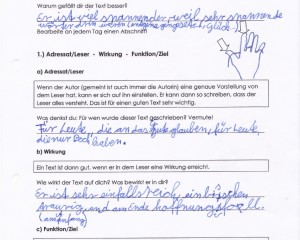 Warum gefällt dir der Text besser?
Er ist viel spannender, weil sehr spannende
war für drin wenn
Bearbeite an jedem Tag einen Abschnitt
1.) Adressat/Leser - Wirkung - Funktion/Ziel
a) Adressat/Leser
Wenn der Autor (gemeint ist auch immer die Autorin) eine genaue Vorstellung von
dem Leser hat, kann er sich auf ihn einstellen. Er kann dann so schreiben, dass der
Leser alles versteht. Das ist für einen guten Text sehr wichtig.
Was denkst du: Für wen wurde dieser Text geschrieben? Vermute!
Für Leute, die an das gute glauben, für Leute,
die nur Pech haben.
b) Wirkung
Ein Text ist dann gut, wenn er in dem Leser eine Wirkung erreicht.
Wie wirkt der Text auf dich? Was bewirkt er in dir?
Er ist sehr einfallsreich, ein bisschen
traurig und am Ende hoffnungsvoll.
(am Anfang)
c) Funktion/Ziel